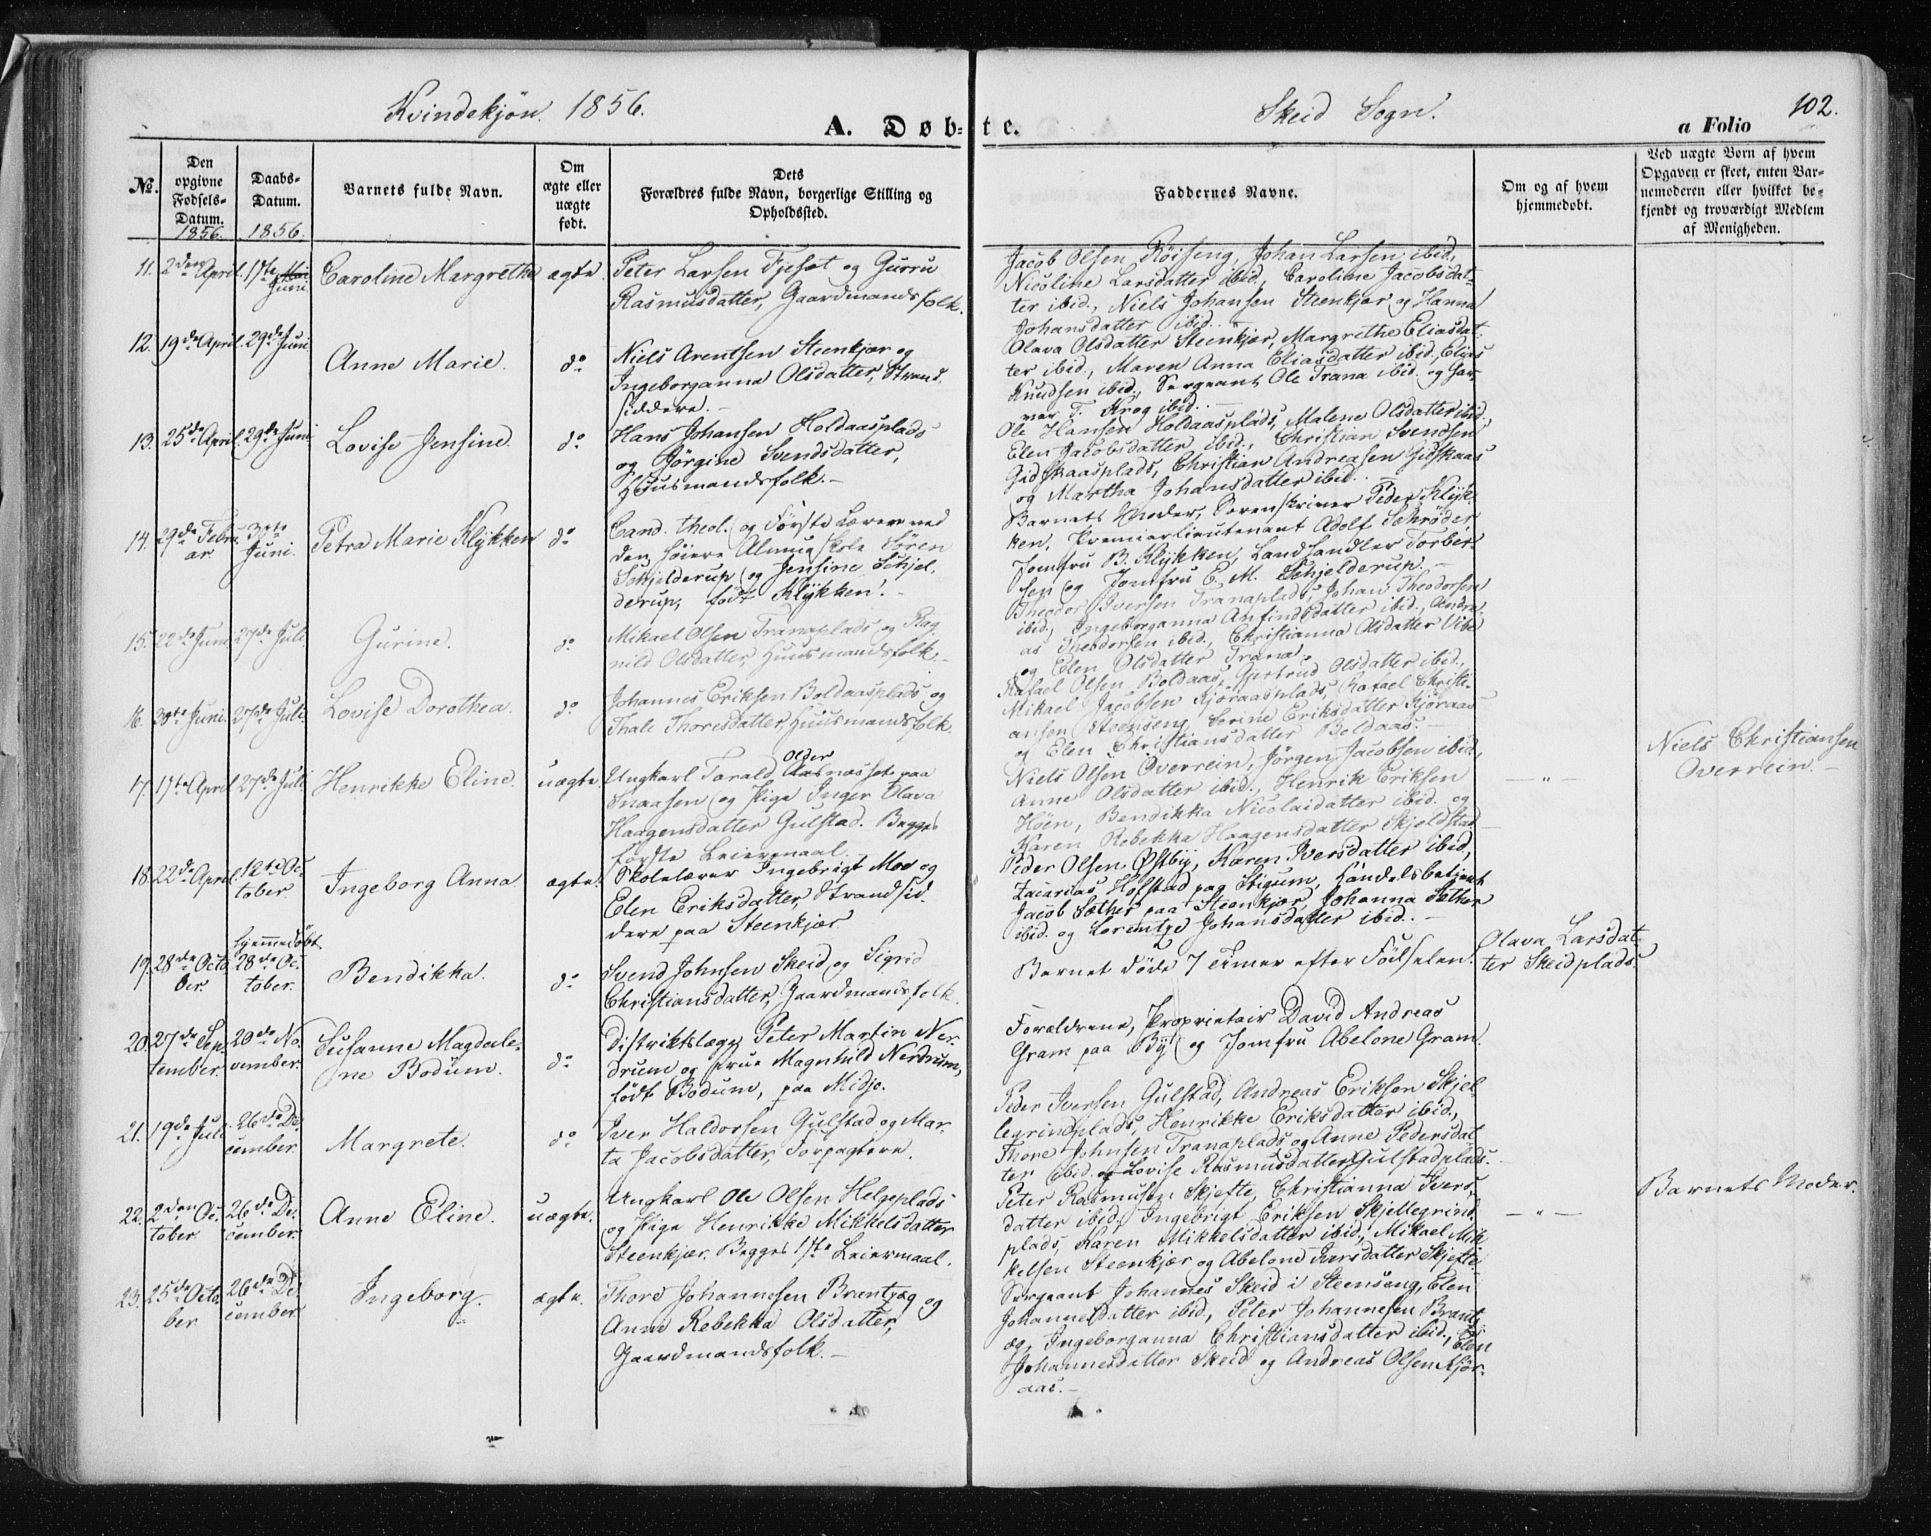 Kvindekjøn. 1856.
A. Døbte.
Skeid Sogn.
a Folio 102.
No.
Den opgivne Fødsels-Datum. 1856.
Daabs-Datum. 1856.
Barnets fulde Navn.
Om ægte eller uægte født.
Dets Forældres fulde Navn, borgerlige Stilling og Opholdssted.
Faddernes Navne.
Om og af hvem hjemmedøbt.
Ved uægte Børn af hvem Opgaven er skeet, enten Barnemoderen eller hvilket bekjendt og troværdigt Medlem af Menigheden.
11. 2den April. 17te Juni. Caroline Margrethe ægte.
Peter Larsen Fjeset og Gurru
Rasmusdatter, Gaardmandsfolk.
Jacob Olsen Røiseng, Johan Larsen ibid,
Nicoline Larsdatter ibid., Caroline Jacobsdat-
ter ibid., Niels Johansen Steenkjær og Hanna
Johansdatter ibid.
12. 19de April. 29de Juni. Anne Marie. do
Niels Arentsen Steenkjær og
Ingeborganna Olsdatter, Strand-
siddere. -
Olava Olsdatter Steenkjær, Margrethe Eliasdat-
ter ibid., Maren Anna Eliasdatter ibid., Elias
Knudsen ibid., Sergeant Ole Trana ibid. og Gar-
ver T. Krog ibid. -
13. 25de April. 29de Juni. Lovise Jensine. do
Hans Johansen Holdaasplads
og Jørgine Svendsdatter,
Huusmandsfolk. -
Ole Hansen Holdaasplads, Malene Olsdatter ibid.
Elen Jacobsdatter ibid., Christian Svendsen
Gidskaasplads, Christian Andreasen Gidskaas
og Martha Johansdatter ibid.
14. 29de Febru-
ar. 3die Juni. Petra Marie Klykken do
Cand. theol. og Første Lærer ved
den høiere Almueskole Søren
Schjelderup og Jensine Schjel-
derup, født Klykken. -
Barnets Moder, Sorenskriver Peder Klyk-
ken, Premierlieutenant Adolf Schrøder,
Jomfru B. Klykken, Landhandler Torber-
sen og Jomfru E. M. Schjelderup. -
15. 22de Juni. 27de Juli. Gurine. do
Mikael Olsen Tranaplads og Rag-
nild Olsdatter, Huusmandsfolk. -
Theodor Iversen Tranaplads, Johan Theodorsen
ibid., Ingeborganna Anfindsdatter ibid., Andre-
as Theodorsen ibid., Christianna Olsdatter Vibe
og Elen Olsdatter Trana.
16. 30te Juni. 27de Juli. Lovise Dorothea. do
Johannes Eriksen Boldaasplads og
Thale Thoresdatter, Huusmandsfolk.
Rafael Olsen Boldaas, Gjertrud Olsdatter ibid.,
Mikael Jacobsen Kjøraasplads, Rafael Christi-
ansen Steenseng, Serine Eriksdatter Kjøraas
og Elen Christiansdatter Boldaas. -
17. 17te April 27de Juli Henrikke Eline. uægte.
Ungkarl Torald Older Aasnæsset paa
Snaasen og Pige Inger Olava
Haagensdatter Gulstad. Begges
første Leiermaal. -
Niels Olsen Overrein, Jørgen Jacobsen ibid,
Anne Olsdatter ibid., Henrik Eriksen
Høen, Bendikka Nicolaidatter ibid. og
Karen Rebekka Haagensdatter Skjeldstad
- " -
Niels Christiansen
Overrein. -
18. 22de April. 12te Oc-
tober. Ingeborg Anna. ægte.
Skolelærer Ingebrigt Moe og
Elen Eriksdatter, Strandsid-
dere paa Steenkjær
Peder Olsen Østby, Karen Iversdatter ibid,
Zacarias Hofstad paa Stigum, Handelsbetjent
Jacob Sæther paa Steenkjær, Johanna Sæther
ibid. og Lorentze Johansdatter ibid. -
19. 28de Octo-
ber. hjemmedøbt 28de Oc-
tober. Bendikka. do
Svend Johnsen Skeid og Sigrid
Christiansdatter, Gaardmandsfolk.
Barnet døde 7 Timer efter Fødselen.
Olava Larsdat-
ter Skeidplads.
20. 27de Sep-
tember. 20de No-
vember. Susanne Magdale-
ne Bodum. do
Distriktslæge Peter Martin Ner-
drum og Frue Magnhild Nerdrum,
født Bodum, paa Midjo.
Forældrene, Proprietair David Andreas
Gram paa By og Jomfru Abelone Gram.
21. 19de Juli. 26de De-
cember. Margrete. do
Iver Haldorsen Gulstad og Mar-
ta Jacobsdatter, Forpagtere.
Peder Iversen Gulstad, Andreas Eriksen Skjel-
legrindplads, Henrikke Eriksdatter ibid.,
Thore Johnsen Tranaplads og Anne Pedersdat-
ter ibid. og Lovise Rasmusdatter Gulstadplads.
22. 2den Oc-
tober 26de De-
cember. Anne Eline. uægte.
Ungkarl Ole Olsen Helgeplads
og Pige Henrikke Mikkelsdatter
Steenkjær. Begges 1ste Leiermaal.
Peter Rasmusen Skjefte, Christianna Ivers-
datter ibid., Ingebrigt Eriksen Skjellegrind-
plads, Karen Mikkelsdatter ibid., Mikael Mik-
kelsen Steenkjær og Abelone Larsdatter Skjefte.
- " -
Barnets Moder.
23. 25de Octo-
ber 26de De-
cember. Ingeborg. ægte.
Thore Johannesen Brantzæg og
Anne Rebekka Olsdatter,
Gaardmandsfolk. -
Sergeant Johannes Skeid i Steenseng, Elen
Johannesdatter ibid, Peter Johannesen Brantz-
æg, Ingeborganna Christiansdatter ibid., Elen
Johannesdatter Skeid og Andreas Olsen Kjør-
aas. -